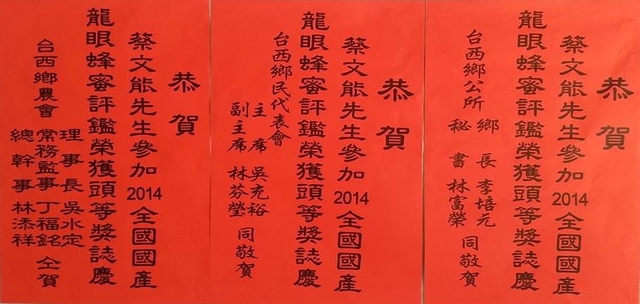 恭賀
蔡文能先生參加2014全國國產
龍眼蜂蜜評鑑榮獲頭等獎誌慶
台西鄉公所
鄉長 李培元
秘書 林富榮
同敬賀
恭賀
蔡文能先生參加2014全國國產
龍眼蜂蜜評鑑榮獲頭等獎誌慶
台西鄉民代表會
主席 吳充裕
副主席 林芬瑩
同敬賀
恭賀
蔡文能先生參加2014全國國產
龍眼蜂蜜評鑑榮獲頭等獎誌慶
台西鄉農會
理事長 吳水定
常務監事 丁福銘
總幹事 林添祥
仝賀